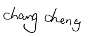 chang cheng